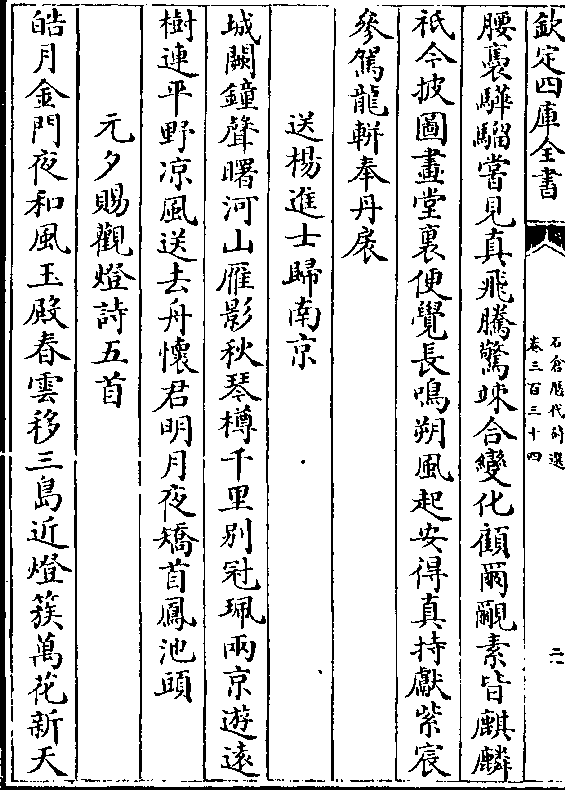 欽定四庫全書
石倉歷代詩選
卷三百三十四
二
腰褭驊騮嘗見真飛騰驚竦合變化顧爾䩄素皆麒麟
祇今披圖畫堂裏便覺長鳴朔風起安得真持獻紫宸
參駕龍軿奉丹扆
送楊進士歸南京
城闕鐘聲曙河山雁影秋琴樽千里别冠珮兩京遊逺
樹連平野凉風送去舟懷君明月夜矯首鳳池頭
元夕賜觀燈詩五首
皓月金門夜和風玉殿春雲移三島近燈簇萬花新天